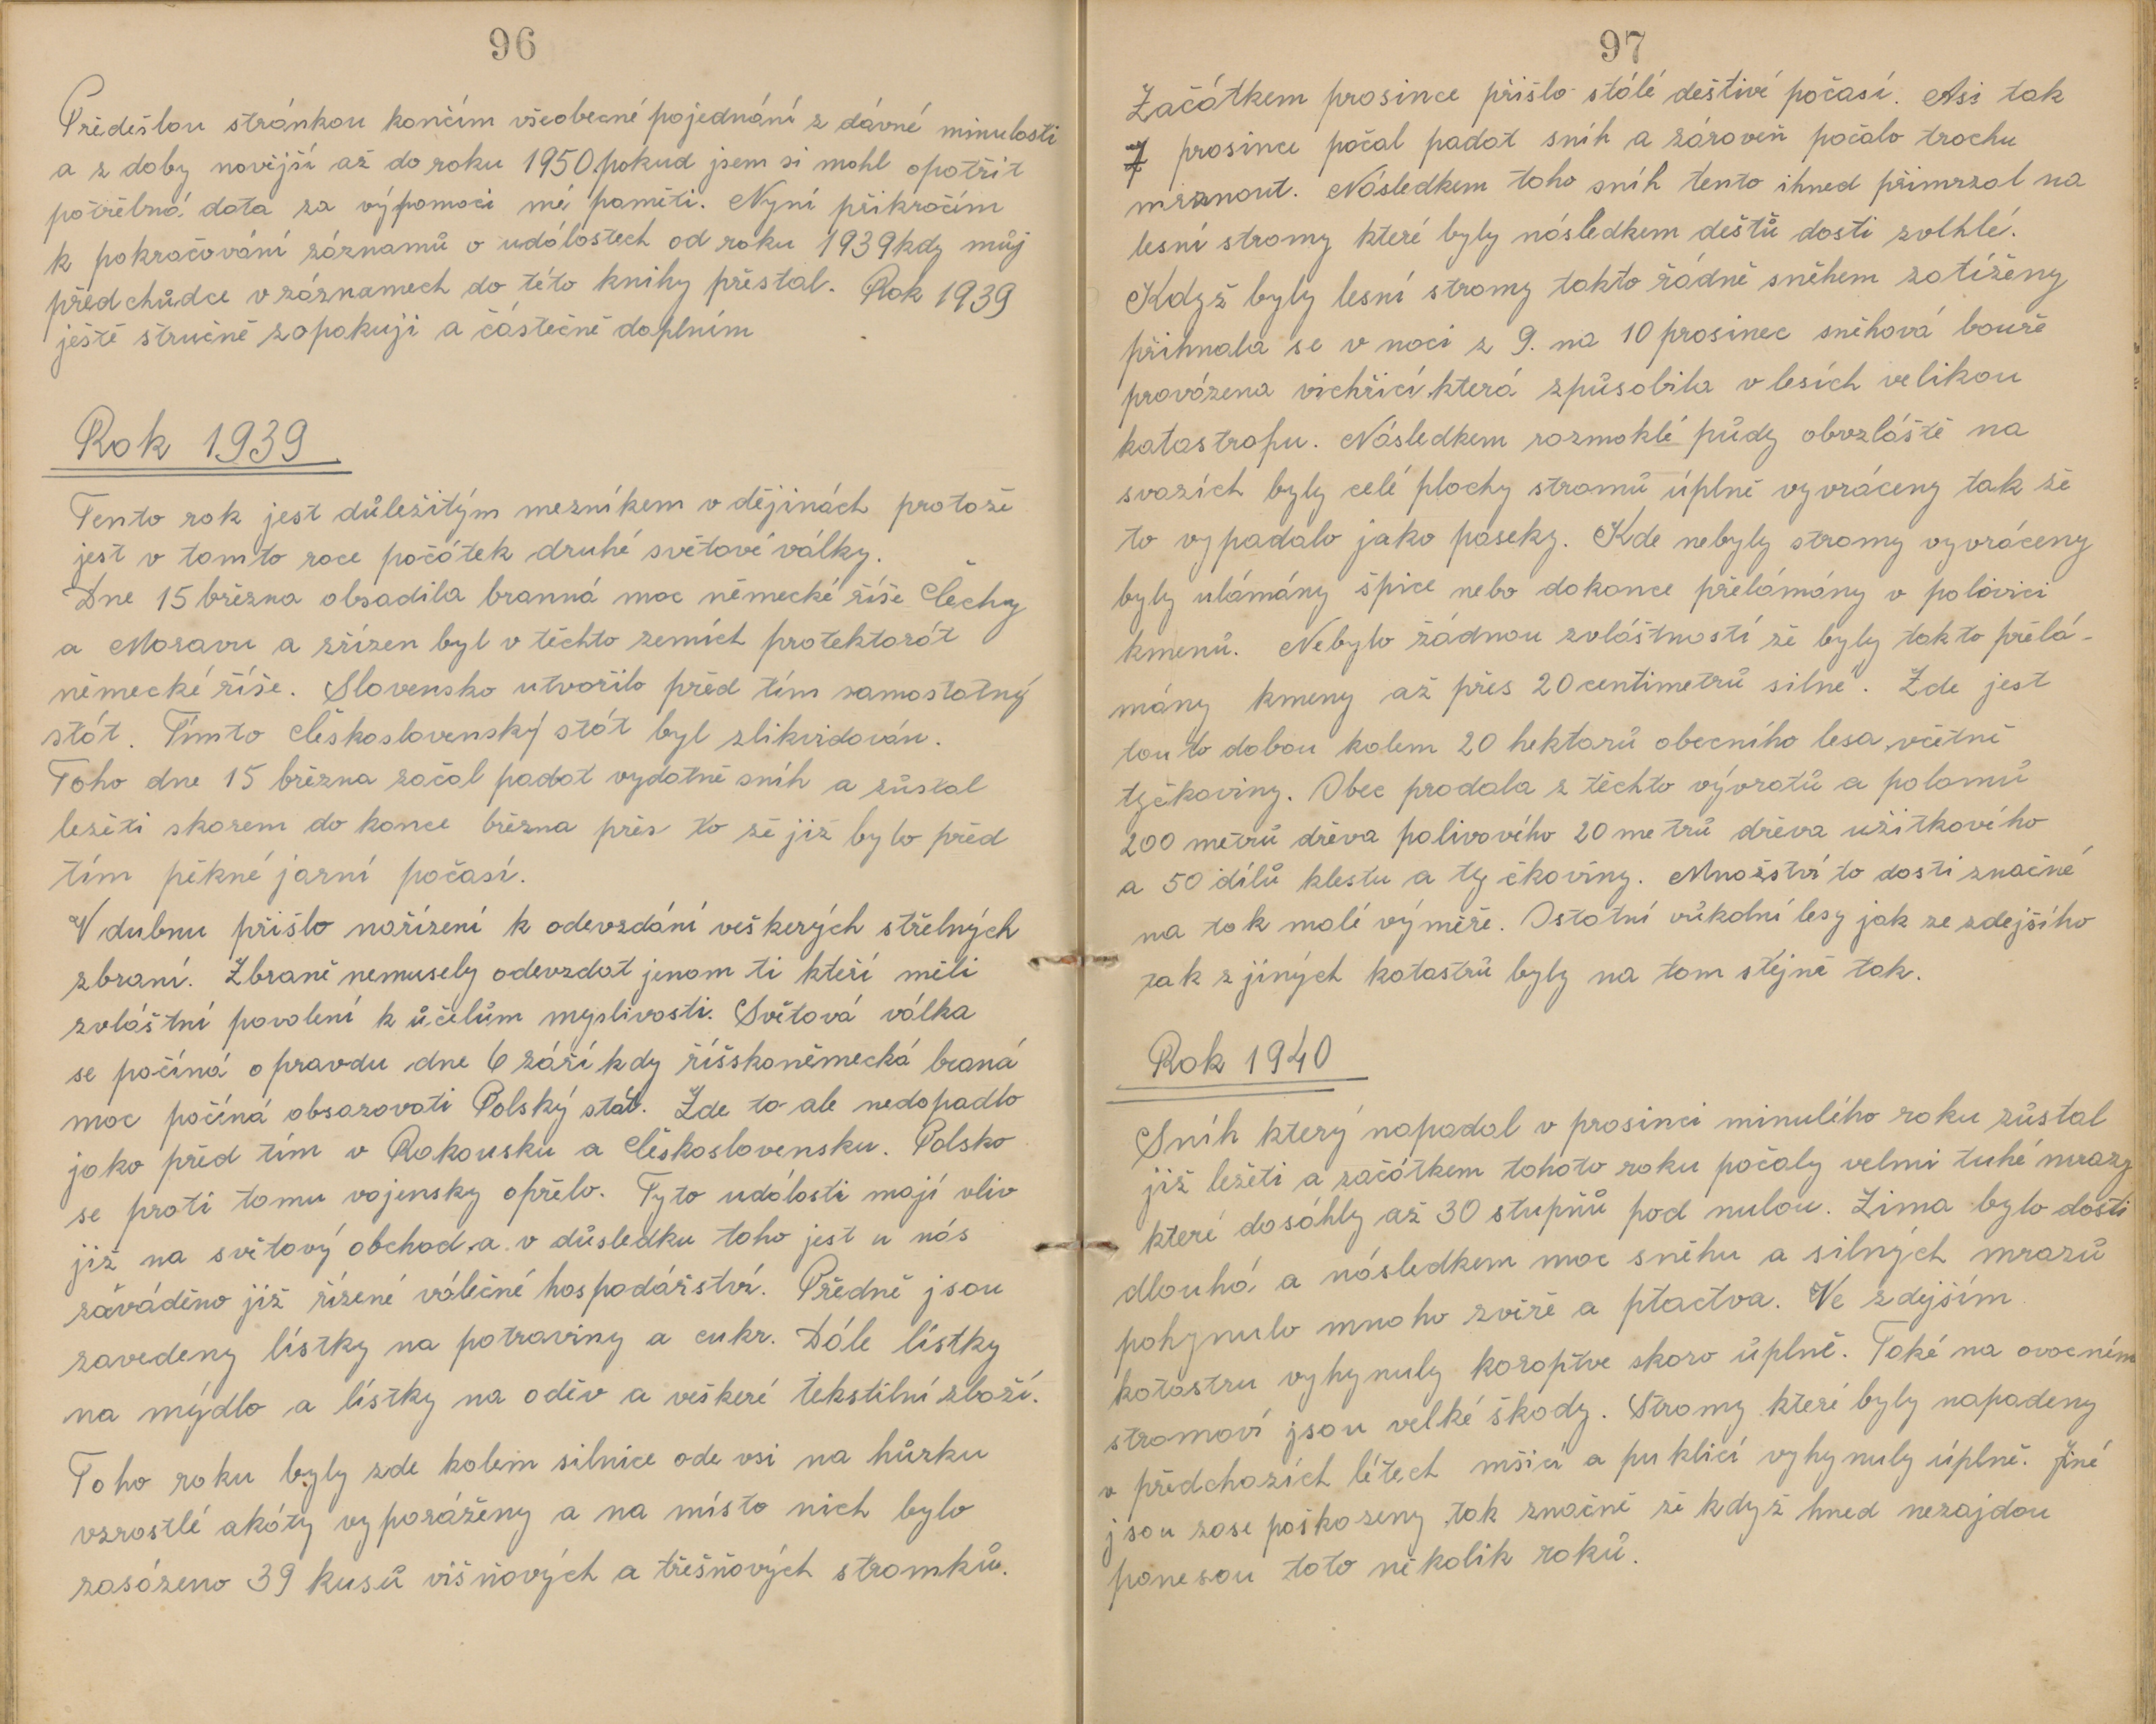 96
Předešlou stránkou končím všeobecné pojednání z dávné minulosti
a z doby novější až do roku 1950 pokud jsem si mohl opatřit
potřebná data za výpomoci mé paměti. Nyní přikročím
k pokračování záznamů o událostech od roku 1939 kdy můj
předchůdce v záznamech do této knihy přestal. Rok 1939
ještě stručně zopakuji a částečně doplním
Rok 1939
Tento rok jest důležitým mezníkem v dějinách protože
jest v tomto roce počátek druhé světové války.
Dne 15 března obsadila branná moc německé říše Čechy
a Moravu a zřízen byl v těchto zemích protektorát
německé říše. Slovensko utvořilo před tím samostatný
stát. Tímto Československý stát byl zlikvidován.
Toho dne 15 března začal padat vydatně sníh a zůstal
ležeti skorem do konce března přes to že již bylo před
tím pěkné jarní počasí.
V dubnu přišlo nařízení k odevzdání veškerých střelných
zbraní. Zbraně nemusely odevzdat jenom ti kteří měli
zvláštní povolení k účelům myslivosti. Světová válka
se počíná opravdu dne 6 září kdy říšskoněmecká braná
moc počíná obsazovati Polský stát. Zde to ale nedopadlo
jako před tím v Rakousku a Československu. Polsko
se proti tomu vojensky opřelo. Tyto události mají vliv
již na světový obchod a v důsledku toho jest u nás
záváděno již řízené válečné hospodářství. Předně jsou
zavedeny lístky na potraviny a cukr. Dále lístky
na mýdlo a lístky na oděv a veškeré tekstilní zboží.
Toho roku byly zde kolem silnice ode vsi na hůrku
vzrostlé akáty vyporáženy a na místo nich bylo
zasázeno 39 kusů višňových a třešňových stromků.
97
Začátkem prosince přišlo stálé deštivé počasí. Asi tak
7 prosince počal padat sníh a zároveň počalo trochu
mrznout. Následkem toho sníh tento ihned přimrzal na
lesní stromy které byly následkem deštů dosti zvlhlé.
Když byly lesní stromy takto řádně sněhem zatíženy
přihnala se v noci z 9. na 10 prosinec sněhová bouře
provázena vichřicí která způsobila v lesích velikou
katastrofu. Následkem rozmoklé půdy obvzláště na
svazích byly celé plochy stromů úplně vyvráceny tak že
to vypadalo jako paseky. Kde nebyly stromy vyvráceny
byly ulámány špice nebo dokonce přelámány v polovici
kmenů. Nebylo žádnou zvláštností že byly takto přelá-
mány kmeny až přes 20 centimetrů silné. Zde jest
touto dobou kolem 20 hektarů obecního lesa včetně
tyčkoviny. Obec prodala z těchto vývratů a polomů
200 metrů dřeva palivového 20 metrů dřeva užitkového
a 50 dílů klestu a tyčkoviny. Množství to dosti značné
na tak malé výměře. Ostatní vůkolní lesy jak ze zdejšího
tak z jiných katastrů byly na tom stejně tak.
Rok 1940
Sníh který napadal v prosinci minulého roku zůstal
již ležeti a začátkem tohoto roku počaly velmi tuhé mrazy
které dosáhly až 30 stupňů pod nulou. Zima bylo dosti
dlouhá a následkem moc sněhu a silných mrazů
pohynulo mnoho zvíře a ptactva. Ve zdejším
katastru vyhynuly koroptve skoro úplně. Také na ovocném
stromoví jsou velké škody. Stromy které byly napadeny
v předchozích létech mšicí a puklicí vyhynuly úplně. Jiné
jsou zase poškozeny tak značně že když hned nezajdou
ponesou toto několik roků.